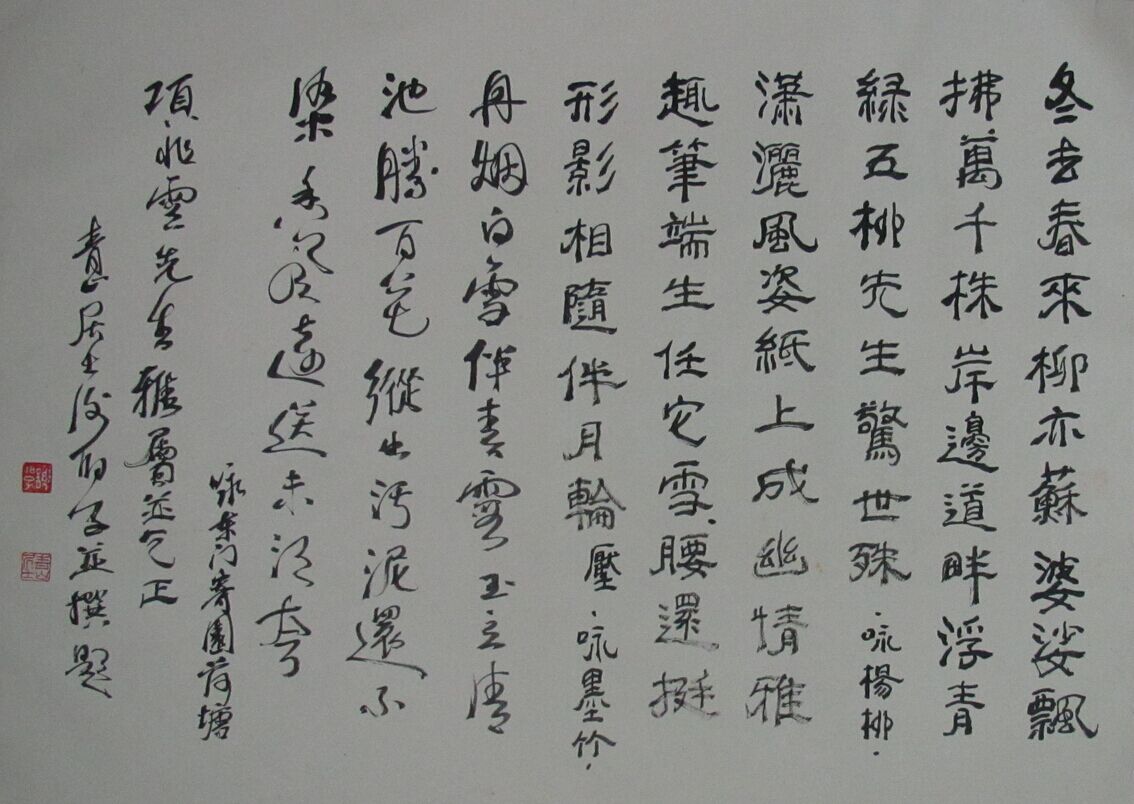 冬去春來柳亦蘇婆娑飄
拂萬千株岸邊道畔浮青
緑五柳先生驚世殊·咏楊柳·
潇灑風姿紙上成幽情雅
趣筆端生任它雪、腰還挺
形影相隨伴月輪壓·咏墨竹·
丹烟白雪伴青雲玉立清
池勝百花縱出污泥還不
染香氣遠送未須夸
咏東门寄園荷塘
項兆雲先生雅屬並乞正
青山居士謝印子並撰題